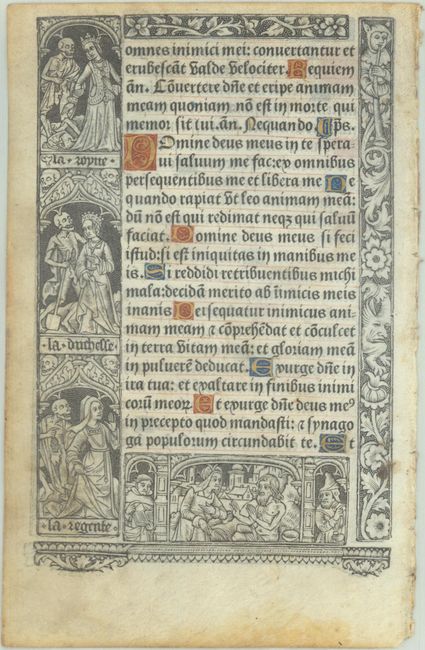 omnes inimici mei: conuertantur et
erubescāt valde velociter. Requiem
añ. Cōuertere dñe et eripe animam
meam quoniam nō est in morte qui
memor sit tui. añ. Nequando. ps.
Domine deus meus in te spera
ui saluum me fac: ex omnibus
persequentibus me et libera me Ne
quando rapiat vt leo animam meā:
dū nō est qui redimat neqꝫ qui saluū
faciat. Domine deus meus si feci
istud: si est iniquitas in manibus me
is. Si reddidi retribuentibus michi
mala: decidā merito ab inīmicis meis
inanis Persequatur inimicus ani-
mam meam ⁊ cōprehēdat et cōculcet
in terra vitam meā: et gloriam meā
in puluerē deducat. Exurge dñe in
ira tua: et exaltare in finibus inimi
corū meoꝝ. Et exurge dñe deus meꝰ
in precepto quod mandasti: ⁊ synago
ga populorum circundabit te. Et
la royne
la duchesse
la regente